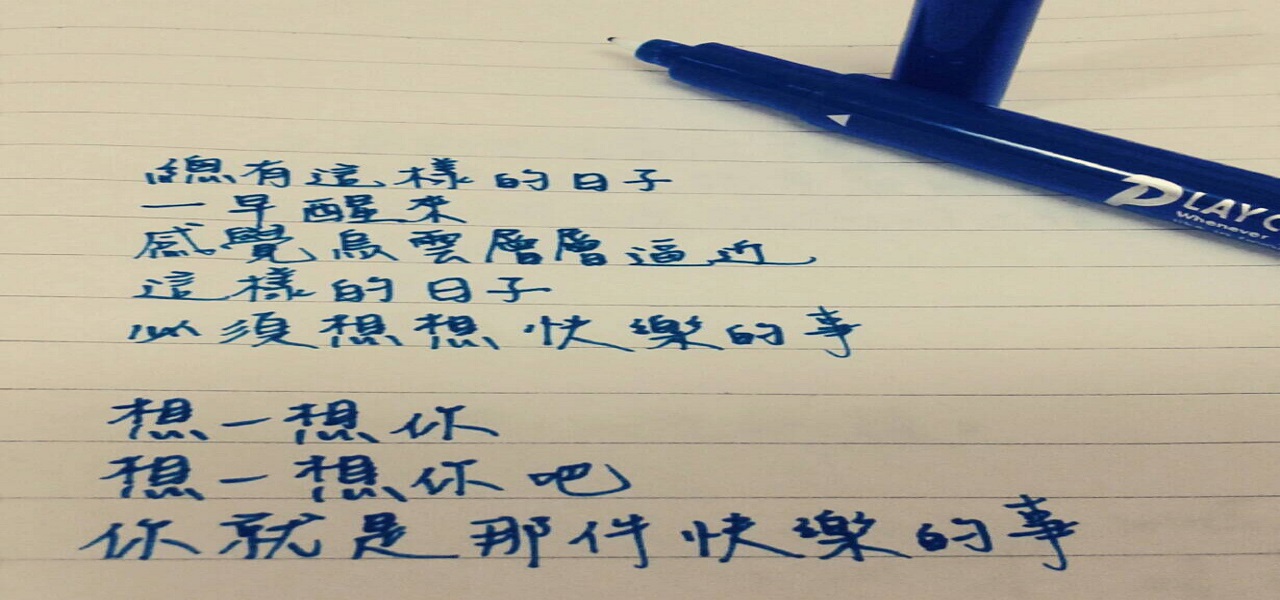 總有這樣的日子
一早醒來
感覺烏雲層層逼近
這樣的日子
必須想想快樂的事
想一想你
想一想你吧
你就是那件快樂的事
PLAYC
Whenever